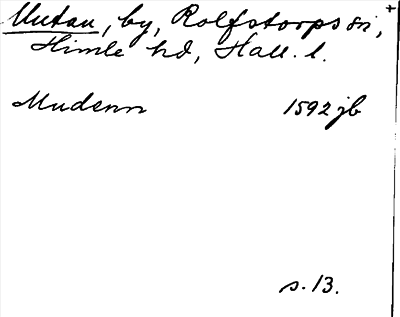 Mutan, by, Rolfstorps sn,
Himle hd, Hall. l.
Mudenn 1592 jb
s. 13.